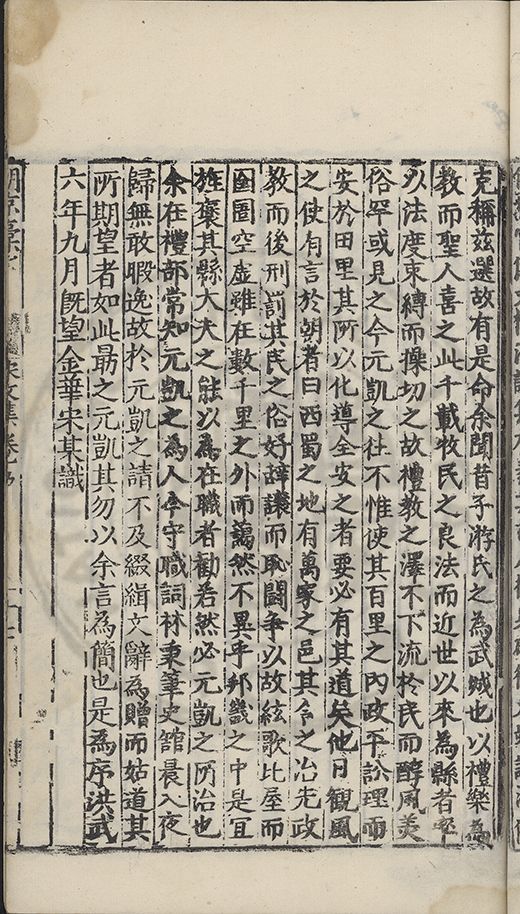 克稱茲選故有是命余聞昔子游氏之為武城也以禮樂為
教而聖人喜之此千載牧民之良法而近世以來為縣者率
以法度束縛而操切之故禮教之澤不下流於民而醇風美
俗罕或見之今元凱之往不惟使其百里之內政平訟理而
安於田里其所以化導全安之者要必有其道矣他日觀風
之使有言於朝者曰西蜀之地有萬家之邑其令之治先政
教而後刑罰其民之俗好辭讓而恥鬪爭以故絃歌比屋而
囹圄空虛雖在數千里之外而藹然不異乎邦畿之中是宜
旌褒其縣大夫之能以為在職者勸若然必元凱之所治也
余在禮部常知元凱之為人今守職詞林秉筆史舘晨入夜
歸無敢暇逸故於元凱之請不及綴緝文辭為贈而姑道其
所期望者如此勗之元凱其勿以余言為簡也是為序洪武
六年九月既望金華宋某識